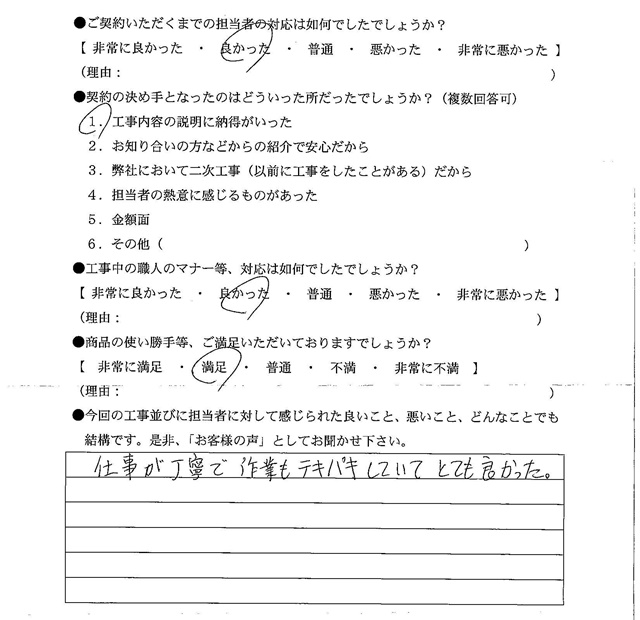 ●ご契約いただくまでの担当者の対応は如何でしたでしょうか？
【 非常に良かった ・ 良かった ・ 普通 ・ 悪かった ・ 非常に悪かった 】
（理由： ）
●契約の決め手となったのはどういった所だったでしょうか？（複数回答可）
1．工事内容の説明に納得がいった
2．お知り合いの方などからの紹介で安心だから
3．弊社において二次工事（以前に工事をしたことがある）だから
4．担当者の熱意に感じるものがあった
5．金額面
6．その他（ ）
●工事中の職人のマナー等、対応は如何でしたでしょうか？
【 非常に良かった ・ 良かった ・ 普通 ・ 悪かった ・ 非常に悪かった 】
（理由： ）
●商品の使い勝手等、ご満足いただいておりますでしょうか？
【 非常に満足 ・ 満足 ・ 普通 ・ 不満 ・ 非常に不満 】
（理由： ）
●今回の工事並びに担当者に対して感じられた良いこと、悪いこと、どんなことでも
結構です。是非、「お客様の声」としてお聞かせ下さい。
仕事が丁寧で作業もテキパキしていてとても良かった。